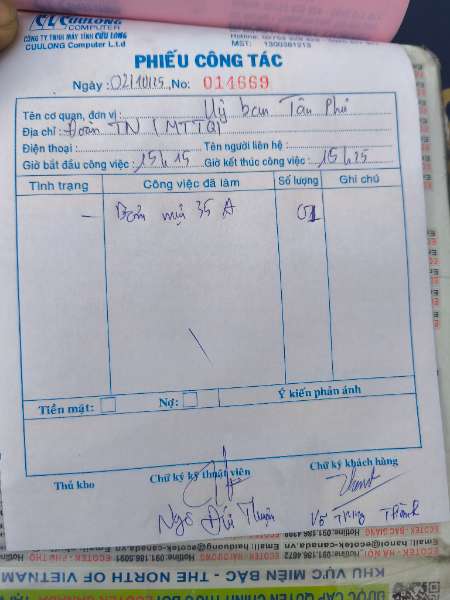 CUULONG
COMPUTER
CÔNG TY TNHH MÁY TÍNH CỬU LONG
CUULONG Computer L.t.d
MST: 1300381213
PHIẾU CÔNG TÁC
Ngày : 02/10/25, No: 014669
Tên cơ quan, đơn vị : Uỷ ban Tân Phú
Địa chỉ : Đoàn TN (MTTQ)
Điện thoại : Tên người liên hệ :
Giờ bắt đầu công việc : 15h15 Giờ kết thúc công việc : 15h25
Tình trạng Công việc đã làm Số lượng Ghi chú
- Bơm mực 35 A 01
Tiền mặt: Nợ: Ý kiến phản ánh
Thủ kho Chữ ký kỹ thuật viên Chữ ký khách hàng
Ngô Đức Thuận Võ Trung Thành
KHU VỰC MIỀN BẮC - THE NORTH OF VIETNAM